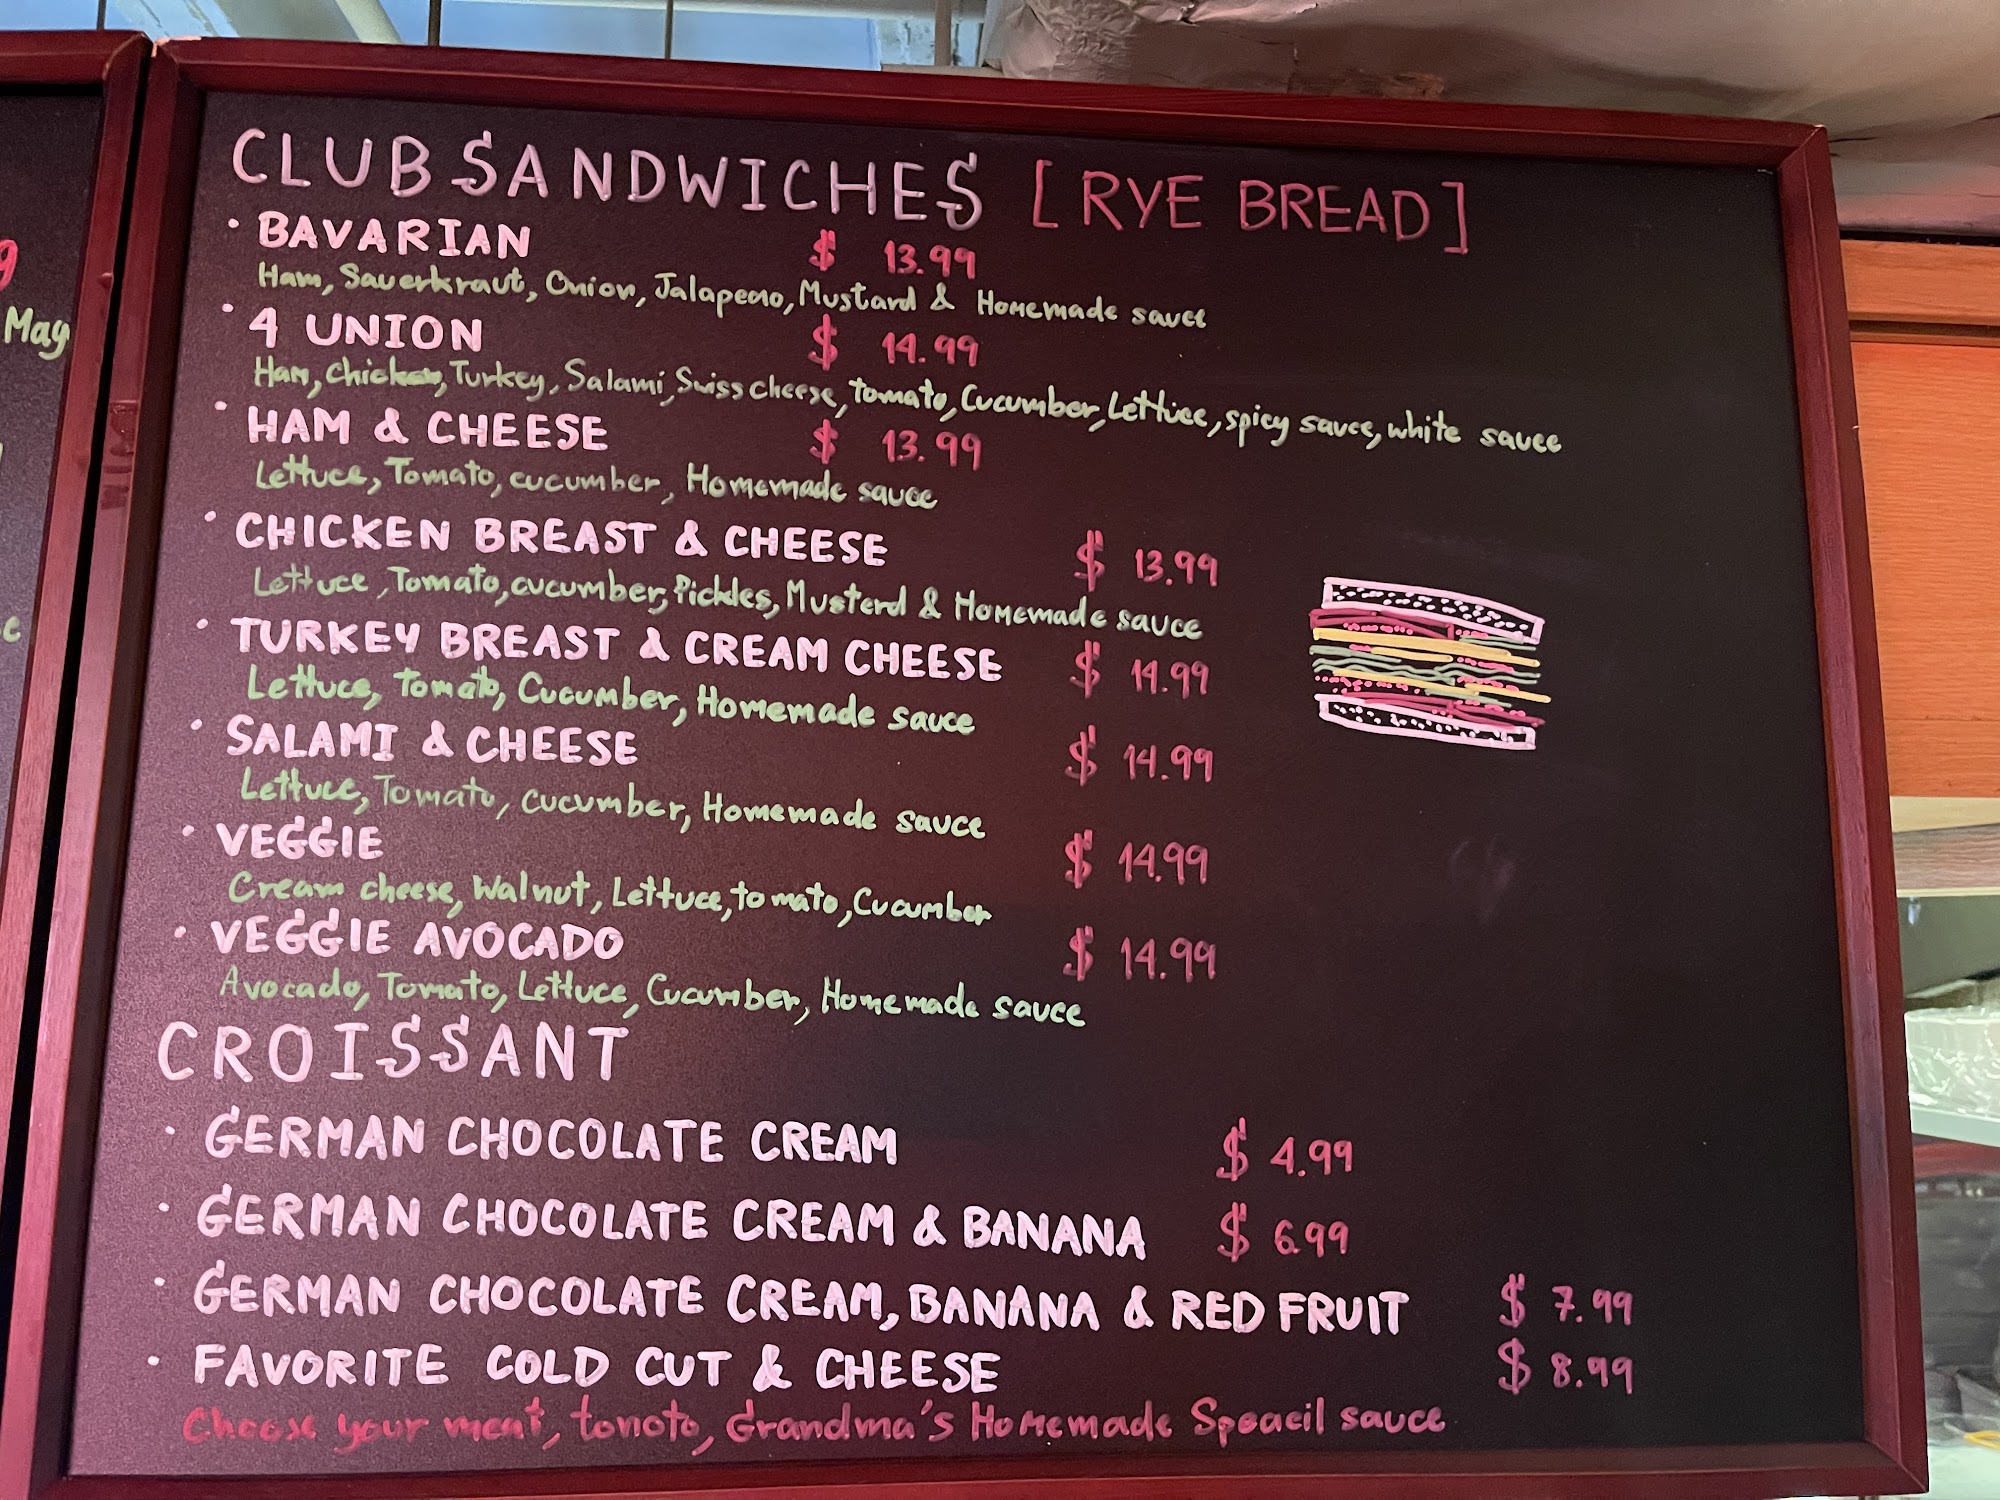 9
May
CLUB SANDWICHES [RYE BREAD]
• BAVARIAN $ 13.99
Ham, Sauerkraut, Onion, Jalapeno, Mustard & Homemade sauce
• 4 UNION $ 14.99
Ham, Chicken, Turkey, Salami, Swiss cheese, tomato, Cucumber, Lettuce, spicy sauce, white sauce
• HAM & CHEESE $ 13.99
Lettuce, Tomato, cucumber, Homemade sauce
• CHICKEN BREAST & CHEESE $ 13.99
Lettuce, Tomato, cucumber, Pickles, Musterd & Homemade sauce
• TURKEY BREAST & CREAM CHEESE $ 14.99
Lettuce, tomato, Cucumber, Homemade sauce
• SALAMI & CHEESE $ 14.99
Lettuce, Tomato, cucumber, Homemade sauce
• VEGGIE $ 14.99
Cream cheese, Walnut, Lettuce, tomato, Cucumber
• VEGGIE AVOCADO $ 14.99
Avocado, Tomato, Lettuce, Cucumber, Homemade sauce
CROISSANT
• GERMAN CHOCOLATE CREAM $ 4.99
• GERMAN CHOCOLATE CREAM & BANANA $ 6.99
• GERMAN CHOCOLATE CREAM, BANANA & RED FRUIT $ 7.99
• FAVORITE COLD CUT & CHEESE $ 8.99
Choose your meat, tomoto, Grandma's Homemade Speacil sauce